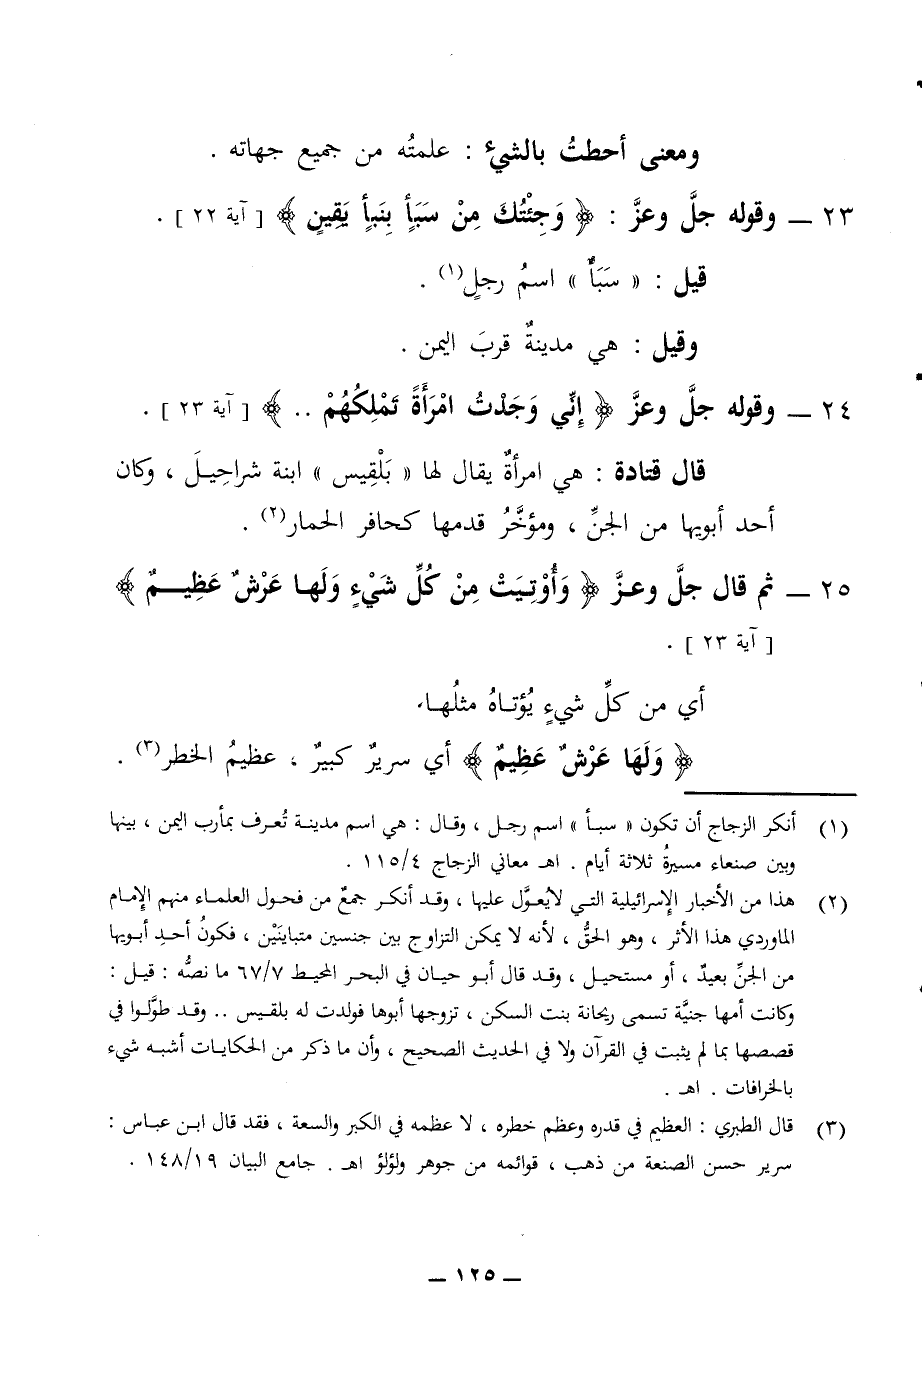 ومعنى أحطتُ بالشيء : علمتُه من جميع جهاته .
٢٣ ــ وقوله جلَّ وعزَّ : ﴿ وَجِئْتُكَ مِنْ سَبَأٍ بِنَبأٍ يَقِينٍ ﴾ [ آية ٢٢ ] .
قيل : « سَبَأٌ » اسمُ رجلٍ(١) .
وقيل : هي مدينةٌ قربَ اليمن .
٢٤ ــ وقوله جلَّ وعزَّ ﴿ إِنِّي وَجَدْتُ امْرَأَةً تَمْلِكُهُمْ .. ﴾ [ آية ٢٣ ] .
قال قتادة : هي امرأةٌ يقال لها « بَلْقِيس » ابنة شراحِيلَ ، وكان
أحد أبويها من الجنِّ ، ومؤخَّرُ قدمها كحافر الحمار(٢) .
٢٥ ــ ثم قال جلَّ وعزَّ ﴿ وَأُوْتِيَتْ مِنْ كُلِّ شَيْءٍ وَلَها عَرْشٌ عَظِيمٌ ﴾
[ آية ٢٣ ] .
أي من كلِّ شيءٍ يُؤتاهُ مثلُها.
﴿ وَلَهَا عَرْشٌ عَظِيمٌ ﴾ أي سريرٌ كبيرٌ ، عظيمُ الخطر(٣) .
(١) أنكر الزجاج أن تكون « سبأ » اسم رجل ، وقال : هي اسم مدينة تُعرف بمأرب اليمن ، بينها
وبين صنعاء مسيرةُ ثلاثة أيام . اهـ معاني الزجاج ١١٥/٤ .
(٢) هذا من الأخبار الإسرائيلية التي لايُعوَّل عليها ، وقد أنكر جمعٌ من فحول العلماء منهم الإمام
الماوردي هذا الأثر ، وهو الحقُّ ، لأنه لا يمكن التزاوج بين جنسين متباينَيْن ، فكونُ أحدِ أبويها
من الجنِّ بعيدٌ ، أو مستحيل ، وقد قال أبو حيان في البحر المحيط ٦٧/٧ ما نصُّه : قيل :
وكانت أمها جنيَّة تسمى ريحانة بنت السكن ، تزوجها أبوها فولدت له بلقيس .. وقد طوَّلوا في
قصصها بما لم يثبت في القرآن ولا في الحديث الصحيح ، وأن ما ذكر من الحكايات أشبه شيء
بالخرافات . اهـ .
(٣) قال الطبري : العظيم في قدره وعظم خطره ، لا عظمه في الكبر والسعة ، فقد قال ابن عباس :
سرير حسن الصنعة من ذهب ، قوائمه من جوهر ولؤلؤ اهـ . جامع البيان ١٤٨/١٩ .
ــ ١٢٥ ــ